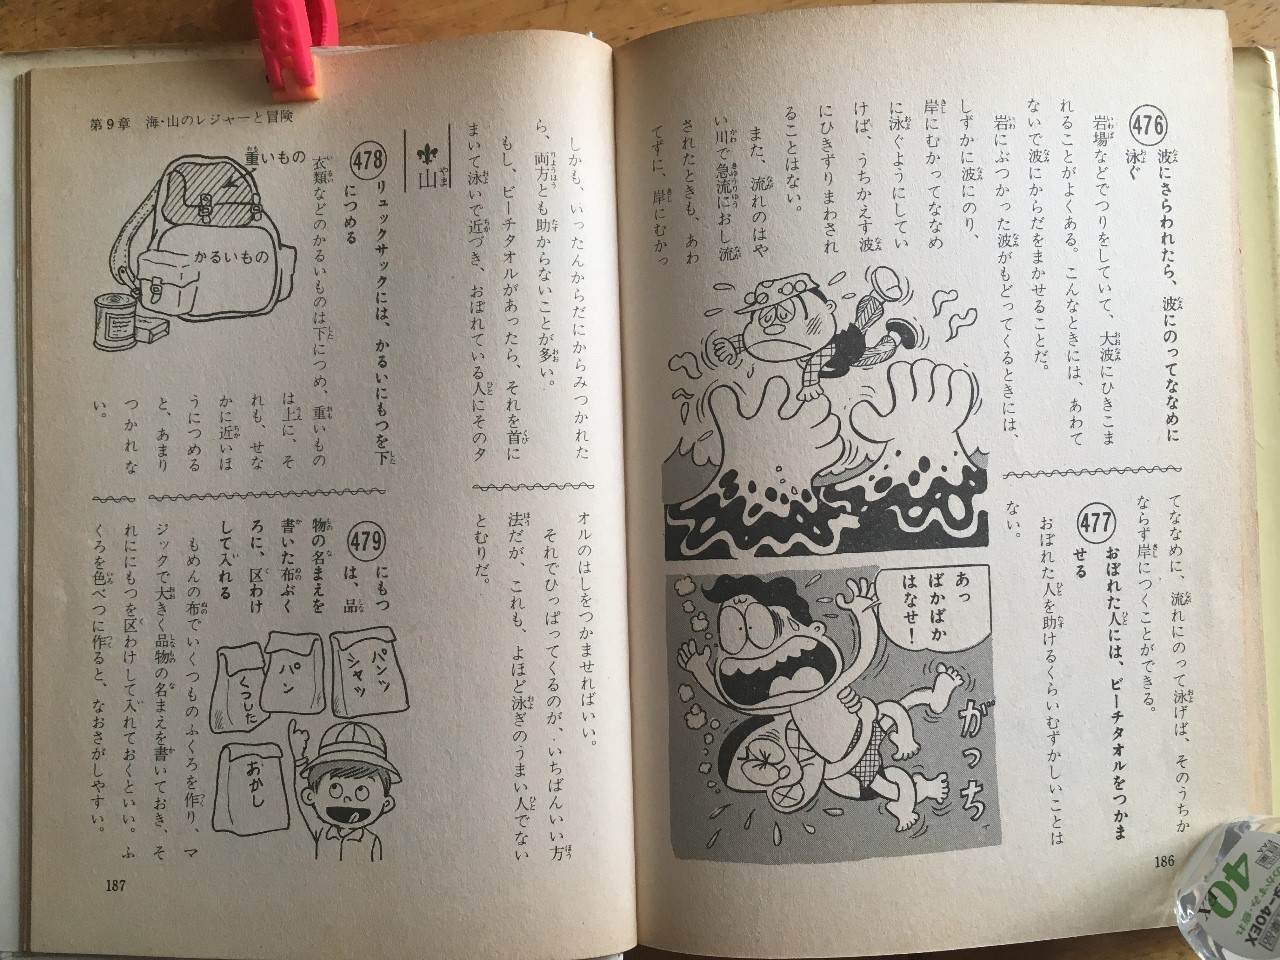 476 波にさらわれたら、波にのってななめに
泳ぐ
岩場などでつりをしていて、大波にひきこま
れることがよくある。こんなときには、あわて
ないで波にからだをまかせることだ。
岩にぶつかった波がもどってくるときには、
しずかに波にのり、
岸にむかってななめ
に泳ぐようにしてい
けば、うちかえす波
にひきずりまわされ
ることはない。
また、流れのはや
い川で急流におし流
されたときも、あわ
てずに、岸にむかっ
てななめに、流れにのって泳げば、そのうちか
ならず岸につくことができる。
477 おぼれた人には、ビーチタオルをつかま
せる
おぼれた人を助けるくらいむずかしいことは
ない。
あっ
ばかばか
はなせ!
がっち
186
しかも、いったんからだにからみつかれた
ら、両方とも助からないことが多い。
もし、ビーチタオルがあったら、それを首に
まいて泳いで近づき、おぼれている人にそのタ
オルのはしをつかませればいい。
それでひっぱってくるのが、いちばんいい方
法だが、これも、よほど泳ぎのうまい人でない
とむりだ。
山
478 リュックサックには、かるいにもつを下
につめる
衣類などのかるいものは下につめ、重いもの
は上に、そ
れも、せな
かに近いほ
うにつめる
と、あまり
つかれな
い。
重いもの
かるいもの
479 にもつ
は、品
物の名まえを
書いた布ぶく
ろに、区わけ
して入れる
もめんの布でいくつものふくろを作り、マ
ジックで大きく品物の名まえを書いておき、そ
れににもつを区わけして入れておくといい。ふ
くろを色べつに作ると、なおさがしやすい。
パンツ
シャツ
パン
くつした
おかし
第9章 海・山のレジャーと冒険
187
40
40EX